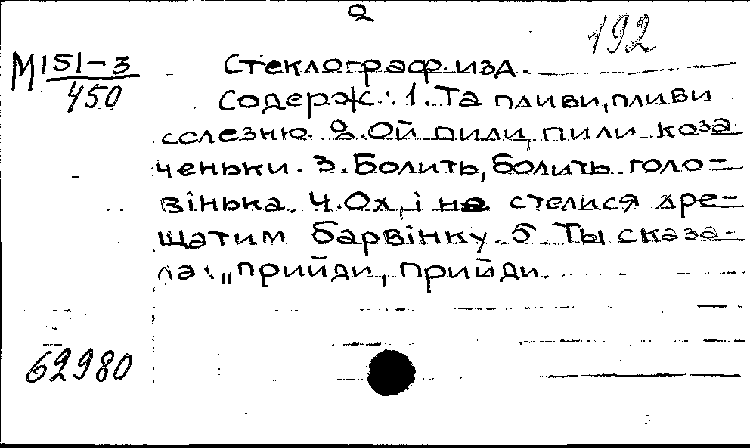 2
192
М151-3
450
Стеклограф.изд.
Содерж.: 1. Та пливи, пливи
селезню. 2. Ой пили, пили коза
ченьки. 3. Болить, болить голо-
вінька. 4. Ох, і не стелися хре-
щатим барвінку. 5. Ты сказа-
ла: „прийди, прийди.
62980